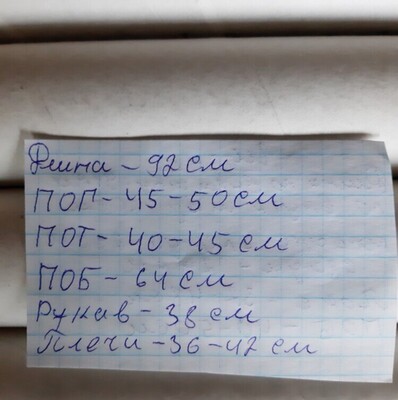 Длина - 92 см
ПОГ - 45-50 см
ПОТ - 40-45 см
ПОБ - 64 см
Рукав - 38 см
Плечи - 36-42 см